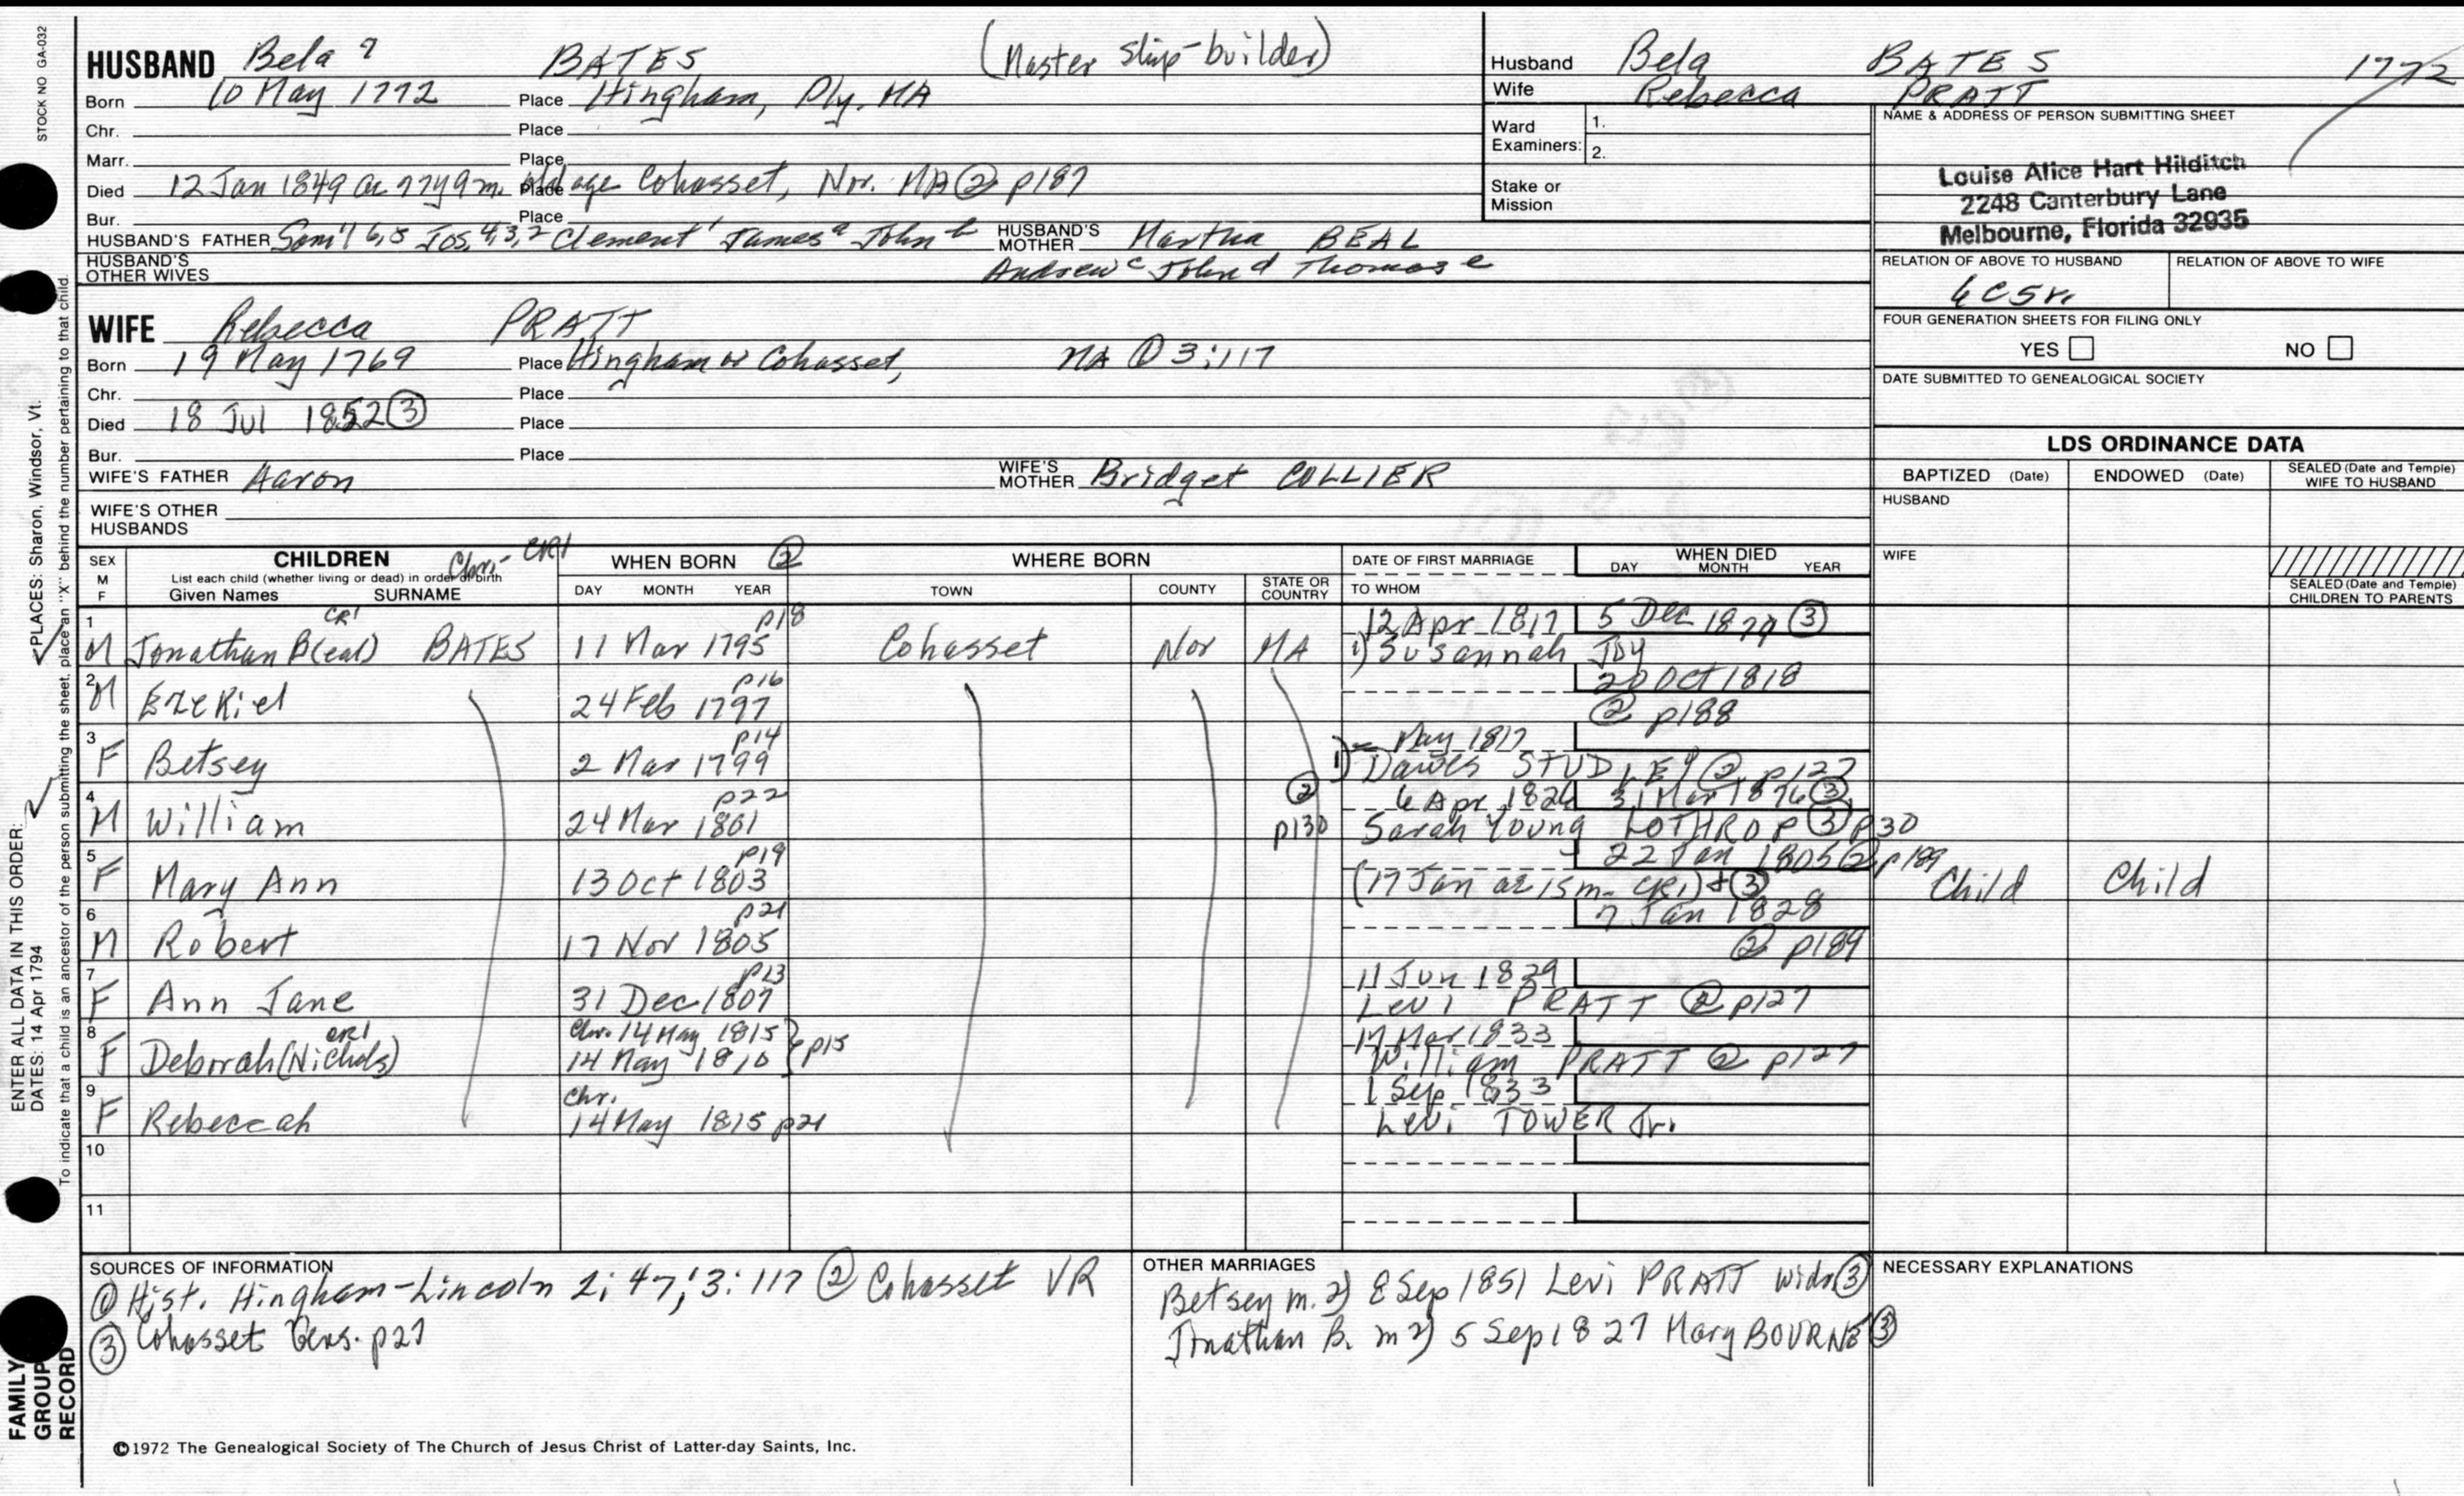 STOCK NO GA-032
HUSBAND Bela 7 BATES (Master ship-builder)
Born 10 May 1772 Place Hingham, Ply. MA
Chr. Place
Marr. Place
Died 12 Jan 1849 ae 77y 9m. old age Place Cohasset, Nor. MA ② p187
Bur. Place
HUSBAND'S FATHER Sam'l 6,5 Jos. 4,3,2 Clement 1 James a John b HUSBAND'S MOTHER Martha BEAL
HUSBAND'S OTHER WIVES Andrew c John d Thomas e
WIFE Rebecca PRATT
Born 19 May 1769 Place Hingham or Cohasset, MA ① 3:117
Chr. Place
Died 18 Jul 1852 ③ Place
Bur. Place
WIFE'S FATHER Aaron WIFE'S MOTHER Bridget COLLIER
WIFE'S OTHER HUSBANDS
Husband Bela BATES 1772
Wife Rebecca PRATT
Ward Examiners: 1.
2.
Stake or Mission
NAME & ADDRESS OF PERSON SUBMITTING SHEET
Louise Alice Hart Hilditch
2248 Canterbury Lane
Melbourne, Florida 32935
RELATION OF ABOVE TO HUSBAND RELATION OF ABOVE TO WIFE
6C5r.
FOUR GENERATION SHEETS FOR FILING ONLY
YES NO
DATE SUBMITTED TO GENEALOGICAL SOCIETY
LDS ORDINANCE DATA
BAPTIZED (Date) ENDOWED (Date) SEALED (Date and Temple) WIFE TO HUSBAND
HUSBAND
WIFE
SEALED (Date and Temple) CHILDREN TO PARENTS
SEX M F CHILDREN Chr.- CR1 WHEN BORN ② WHERE BORN DATE OF FIRST MARRIAGE WHEN DIED
List each child (whether living or dead) in order of birth
Given Names SURNAME DAY MONTH YEAR TOWN COUNTY STATE OR COUNTRY TO WHOM DAY MONTH YEAR
CR1 p18 12 Apr 1817 5 Dec 1877 ③
1 M Jonathan B(eal) BATES 11 Mar 1795 Cohasset Nor MA 1) Susannah JOY
p16 20 Oct 1818
2 M Ezekiel 24 Feb 1797 ② p188
p14 1) - May 1817
3 F Betsey 2 Mar 1799 Dawes STUDLEY ② p127
p22 ② 6 Apr 1826 31 Mar 1876 ③
4 M William 24 Mar 1801 p130 Sarah Young LOTHROP ③ p30
p19 22 Jan 1805 ② p189
5 F Mary Ann 13 Oct 1803 (17 Jan ae 15m. CR1) + ③ Child Child
p21 7 Jan 1828
6 M Robert 17 Nov 1805 ② p189
p13 11 Jun 1829
7 F Ann Jane 31 Dec 1807 Levi PRATT ② p127
CR1 Chr. 14 May 1815 17 Mar 1833
8 F Deborah (Nichols) 14 May 1810 } p15 William PRATT ② p127
Chr. 1 Sep 1833
9 F Rebeccah 14 May 1815 p21 Levi TOWER Jr.
10
11
SOURCES OF INFORMATION
① Hist. Hingham-Lincoln 2; 47; 3: 117 ② Cohasset VR
③ Cohasset Gens. p27
OTHER MARRIAGES
Betsey m. 2) 8 Sep 1851 Levi PRATT widr ③
Jonathan B. m 2) 5 Sep 1827 Mary BOURNE ③
NECESSARY EXPLANATIONS
©1972 The Genealogical Society of The Church of Jesus Christ of Latter-day Saints, Inc.
ENTER ALL DATA IN THIS ORDER: PLACES: Sharon, Windsor, Vt.
DATES: 14 Apr 1794
To indicate that a child is an ancestor of the person submitting the sheet, place an "X" behind the number pertaining to that child.
FAMILY GROUP RECORD